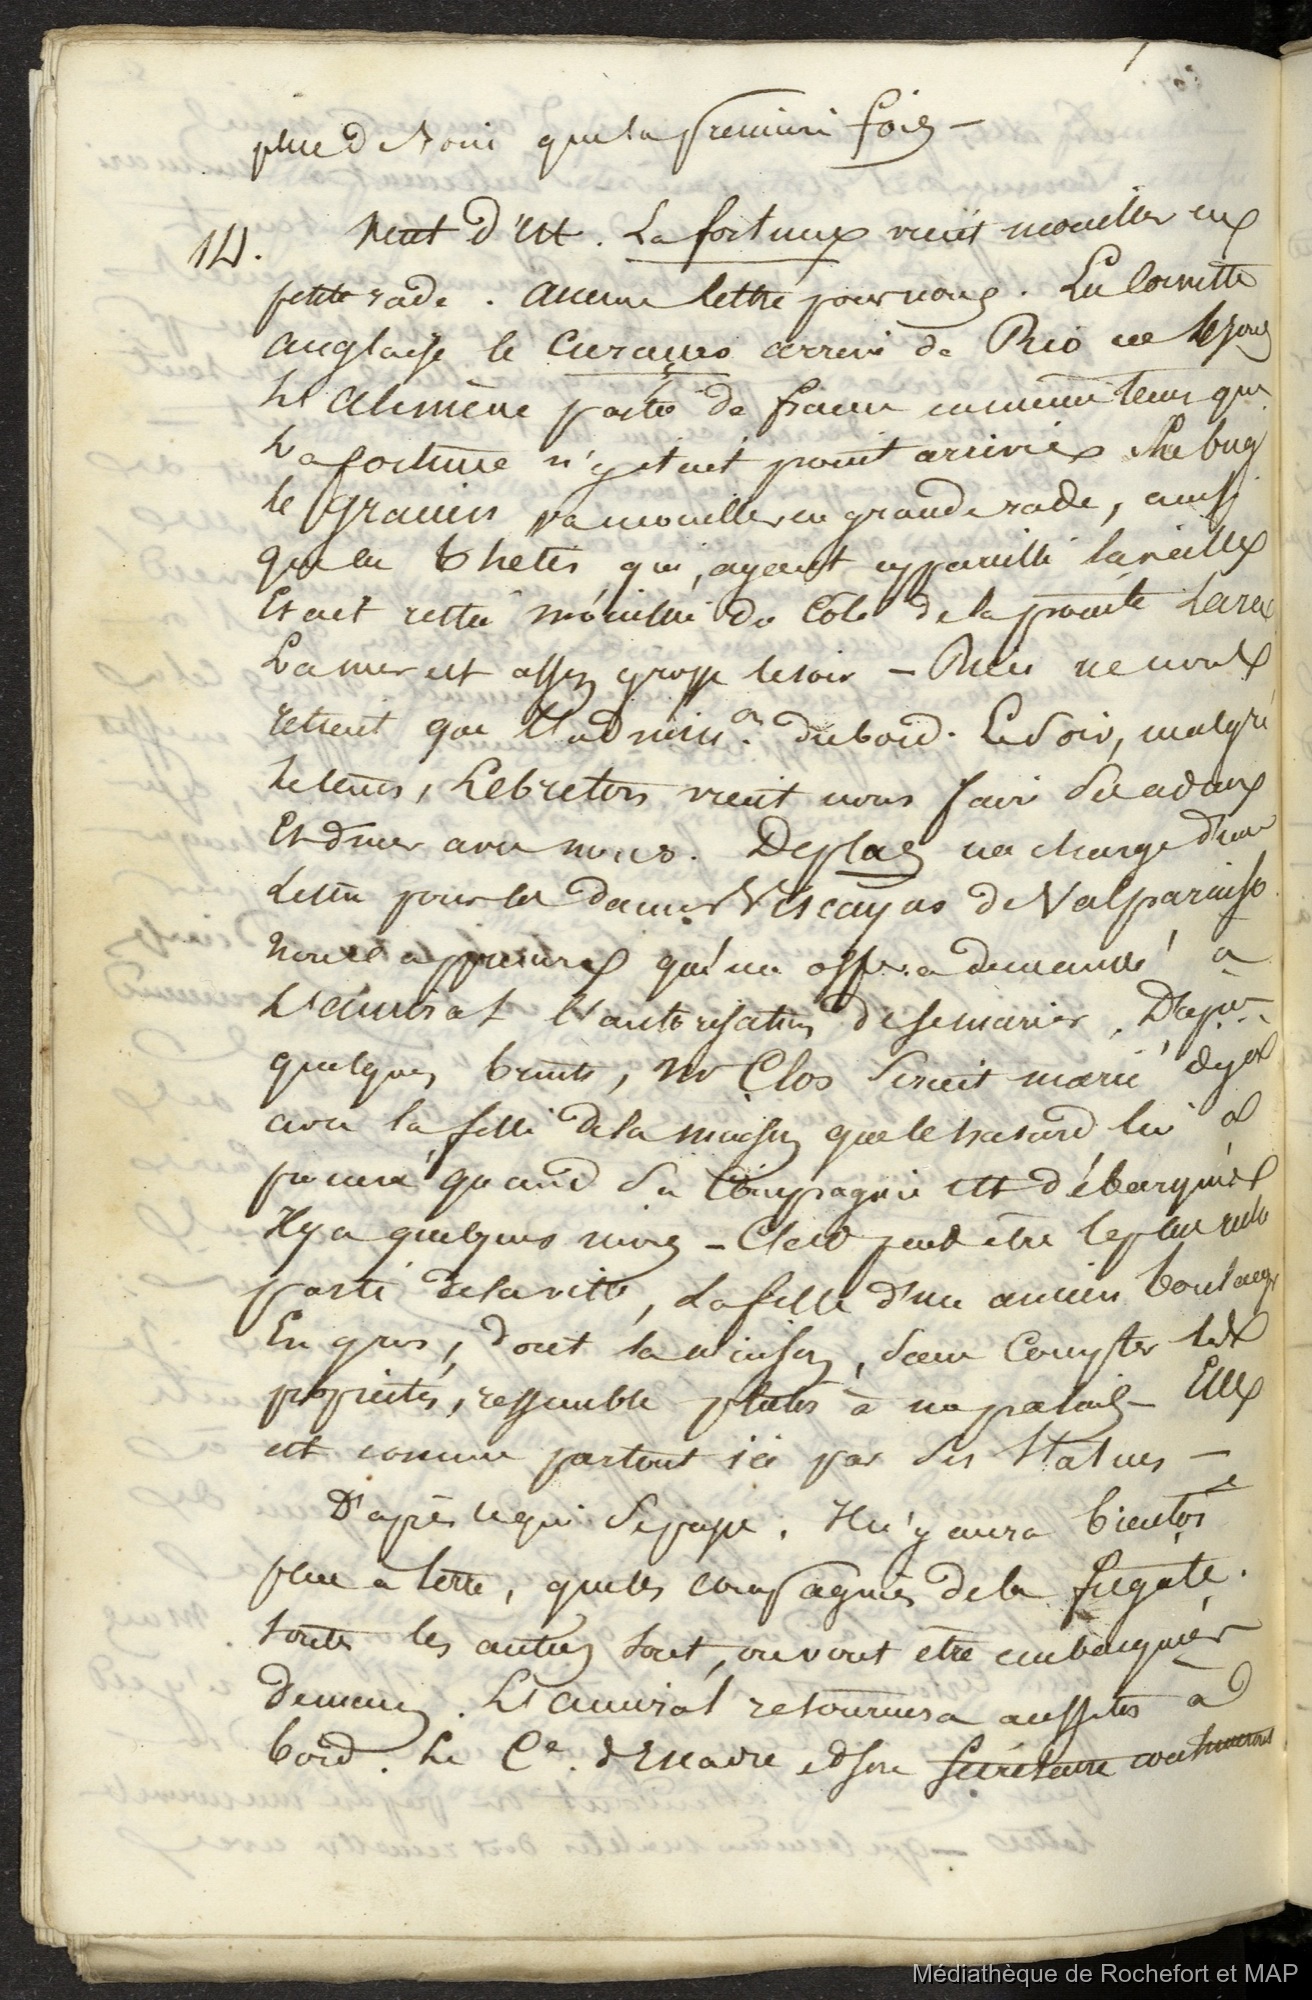 plus d soin que la premiere fois –
14. Vent d'Est. La fortune vient mouiller en
petite rade. Aucune lettre pour nous. La Corvette
anglaise le Curaçao arrive de Rio en
L'Alcmène partie de france en même tems que
La fortune n'y etait point arrivée. Le brig
le Grauin va mouiller en grande rade, ainsi
que la Thetis qui, ayant appareillé la veille
Etait restée mouillée du Côté de la pointe
La mer est assez grosse le soir – Rien ne nous
retient que l'admin.on du bord. Le Soir, malgré
le tems, Lebreton vient nous faire Ses adieux
Et diner avec nous. Desplas me charge d'une
lettre pour les dames Viscayas de Valparaiso.
Nous apprenons qu'un offer. a demandé à
L'amiral l'autorisation de se marier. D'après
quelques bruits, Mr Clos Serait marié déja
avec la fille de la maison que le hasard lui a
procuré quand Sa Compagnie est débarquée
Il y a quelques mois – C'est peut être le plus riche
parti de la ville, La fille d'un ancien boulanger
En gros, dont la maison, Sans Compter les
propriétés, ressemble plutôt à un palais – Elle
est comme partout ici par Ses Statues –
D'après ce qui Se passe. Il n'y aura bientôt
plus a terre, que les compagnies de la frégate.
toutes les autres sont, ou vont etre embarquées
demain. L'amiral retournera aussitôt à
bord. Le Ce. d'Escadre et son Secrétaire continueront
Médiathèque de Rochefort et MAP